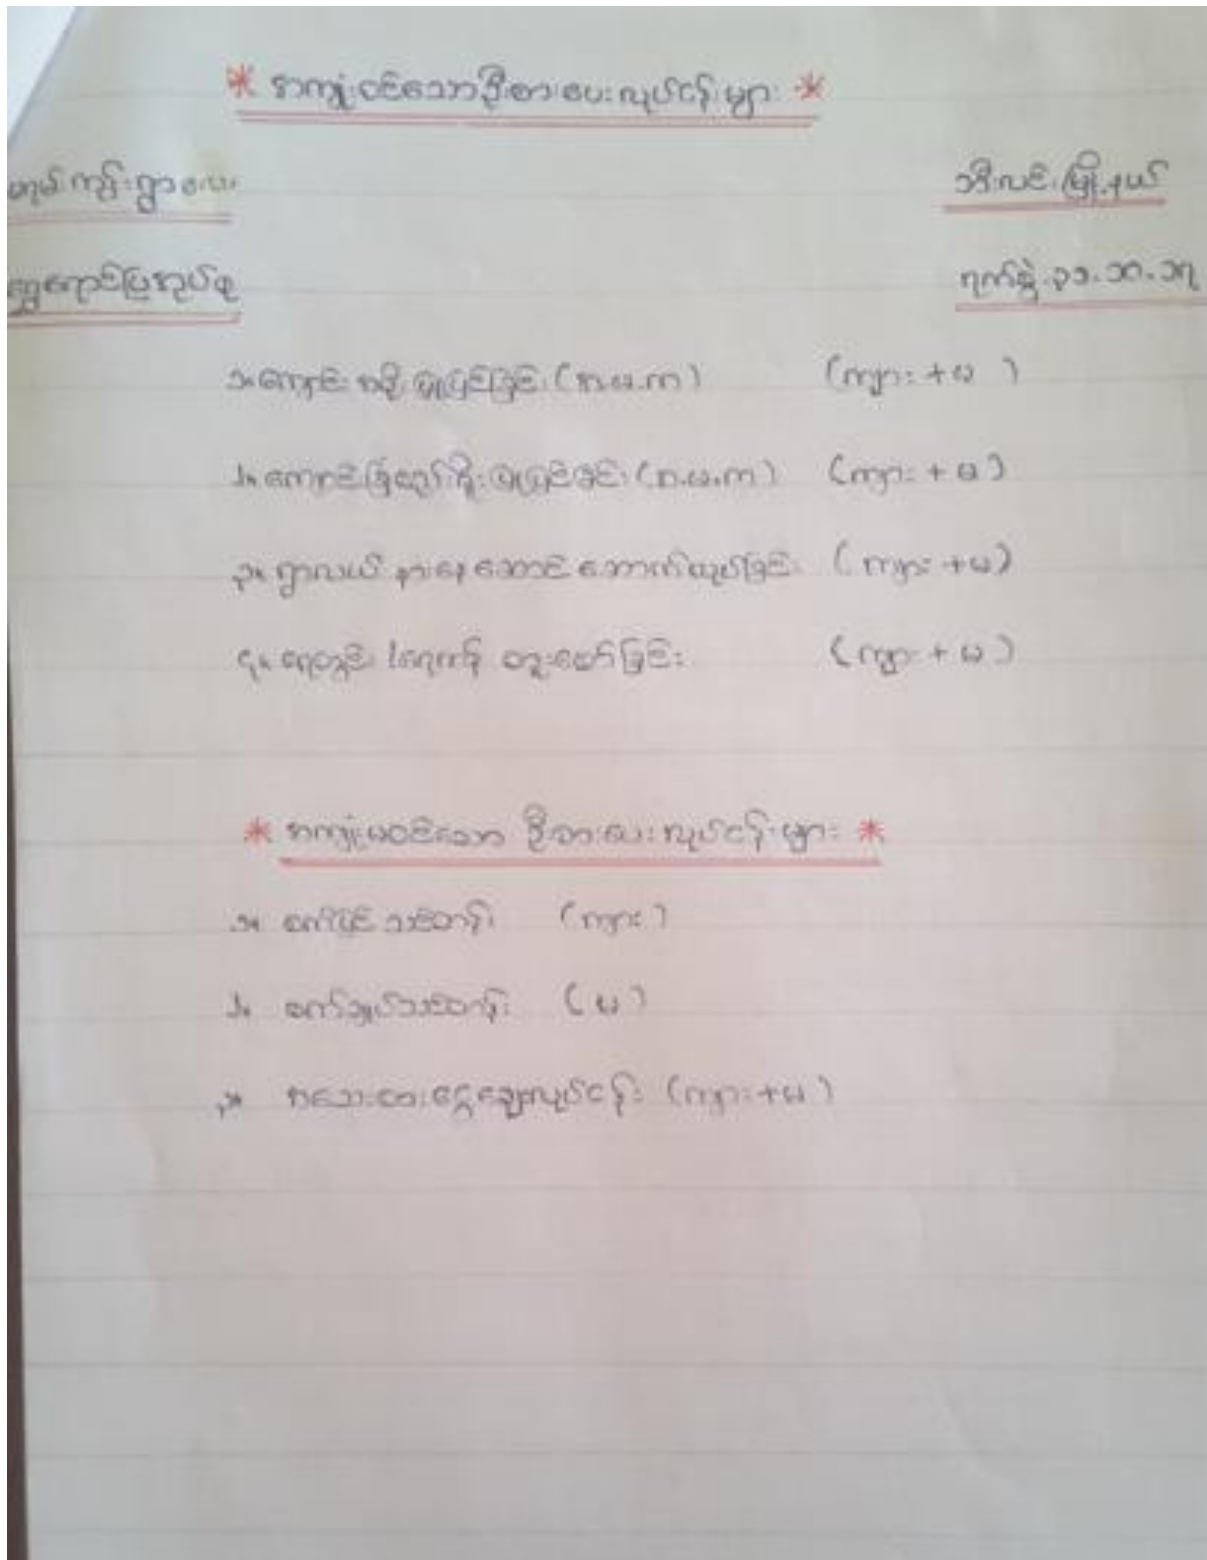 * အကျုံးဝင်သောဦးစားပေးလုပ်ငန်းများ *
ကုန်းရွာလေး ဘီးလင်းမြို့နယ်
ရွှေရောင်ပြအုပ်စု ရက်စွဲ ၃၁.၁၀.၁၇
၁။ ကျောင်း အမိုး ပြုပြင်ခြင်း (အ.မ.က) (ကျား + မ )
၂။ ကျောင်းခြံစည်းရိုး ပြုပြင်ခြင်း (အ.မ.က) (ကျား + မ )
၃။ ရွာလယ် နားနေ ဆောင် ဆောက်လုပ်ခြင်း ( ကျား + မ)
၄။ ရေတွင်း /ရေကန် တူးဖော်ခြင်း (ကျား + မ )
* အကျုံးမဝင်သော ဦးစားပေးလုပ်ငန်းများ *
၁။ စက်ပြင် သင်တန်း (ကျား )
၂။ စက်ချုပ်သင်တန်း ( မ )
၃။ အသေးစားငွေချေးလုပ်ငန်း (ကျား+မ )